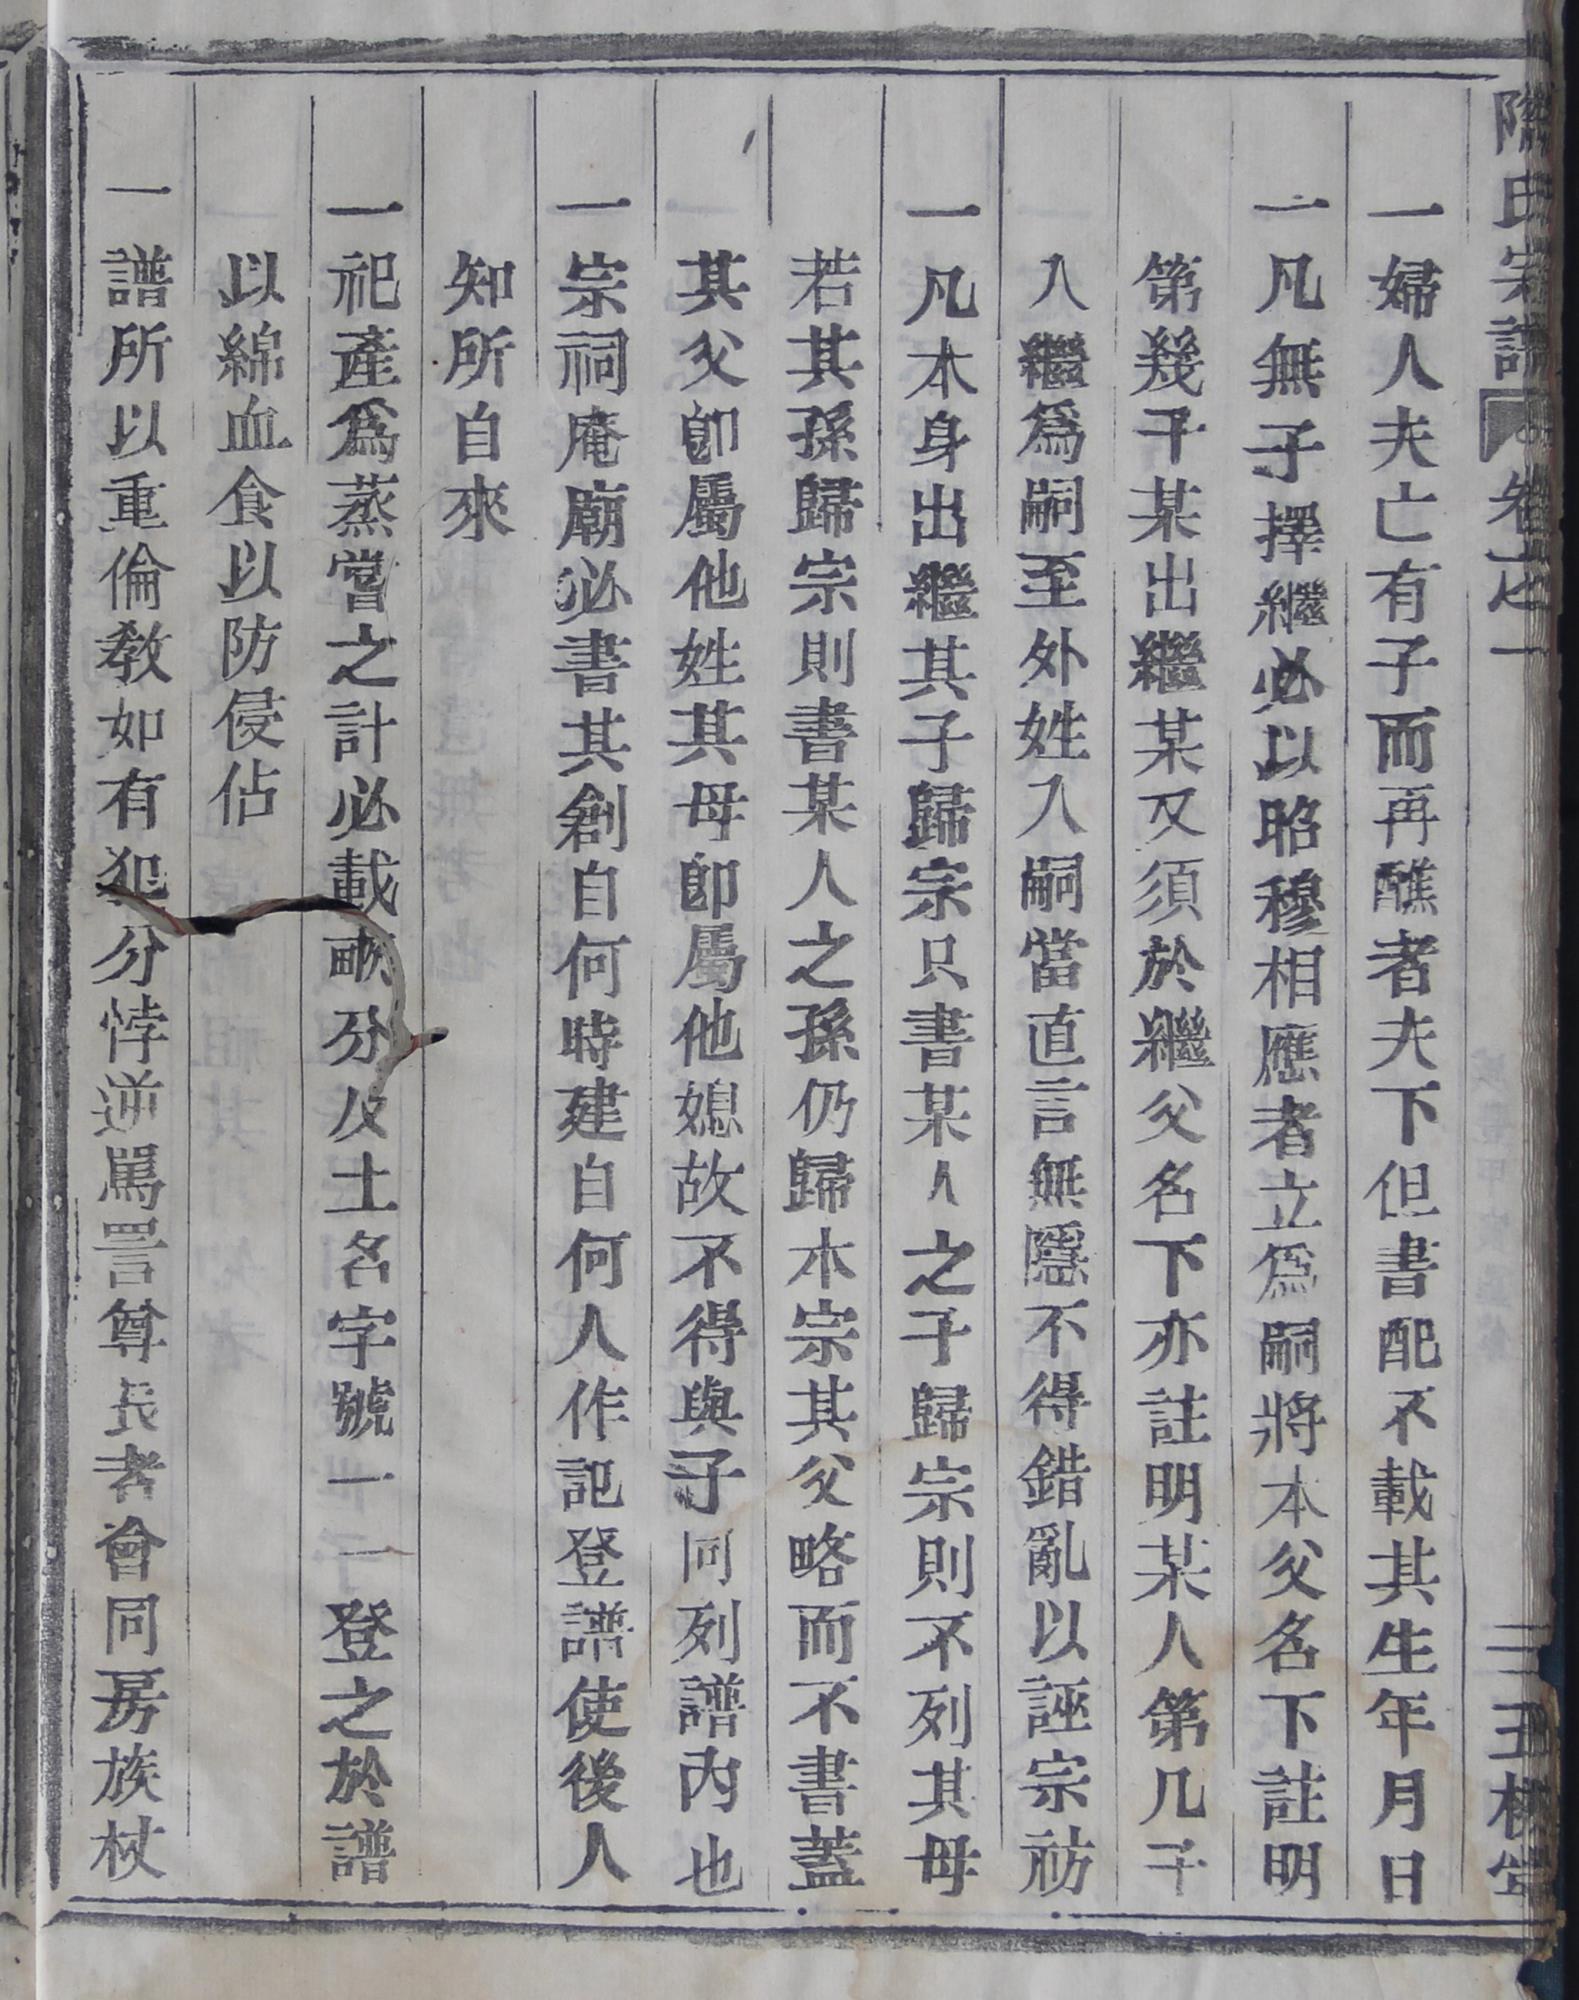 氏宗譜 卷之一 三 玉樹堂
一婦人夫亡有子而再醮者夫下但書配不載其生年月日
一凡無子擇繼必以昭穆相應者立爲嗣將本父名下註明
第幾子某出繼某又須於繼父名下亦註明某人第几子
入繼爲嗣至外姓入嗣當直言無隱不得錯亂以誣宗祊
一凡本身出繼其子歸宗只書某人之子歸宗則不列其母
若其孫歸宗則書某人之孫仍歸本宗其父略而不書蓋
其父卽屬他姓其母卽屬他媳故不得與子同列譜內也
一宗祠庵廟必書其創自何時建自何人作記登譜使後人
知所自來
一祀產爲蒸嘗之計必載畝分及土名字號一一登之於譜
以綿血食以防侵佔
一譜所以重倫教如有犯分悖逆罵詈尊長者會同房族杖